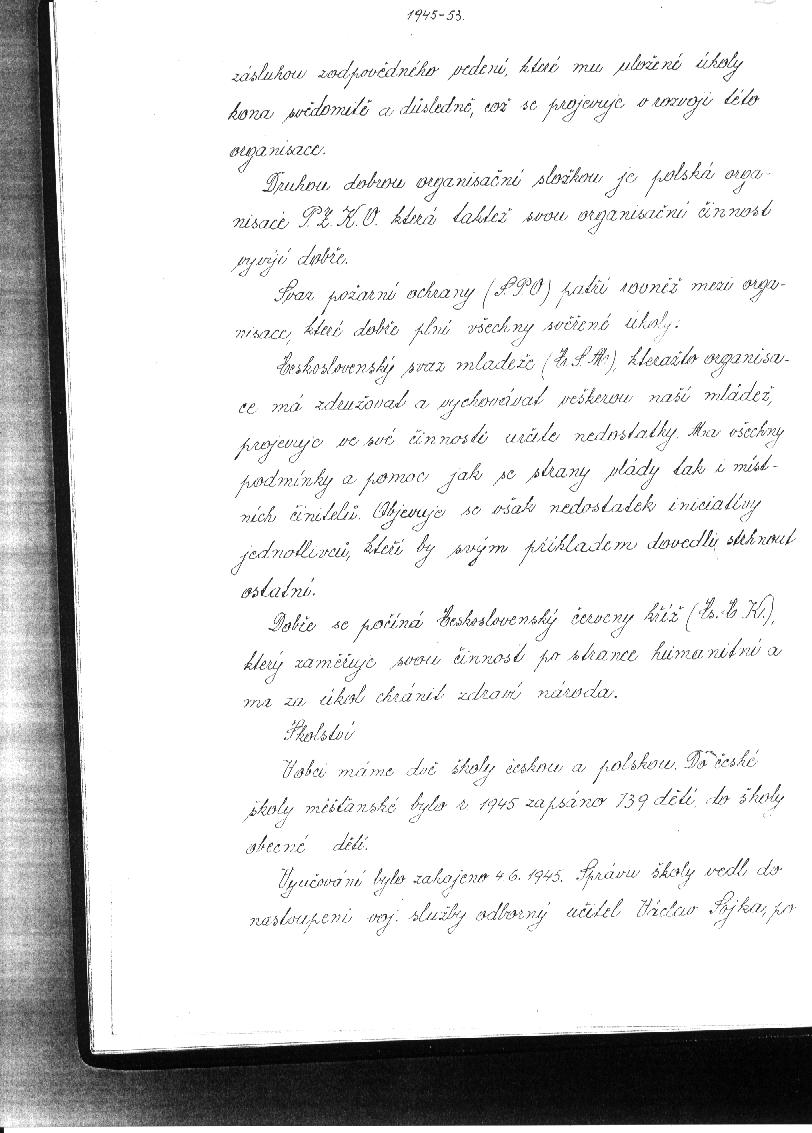 1945-53.
zásluhou zodpovědného vedení, které mu uložené úkoly
kona svědomitě a důsledně, což se projevuje v rozvoji této
organisace.
Druhou dobrou organisační složkou je polská orga-
nisace P.Z.K.O. která taktéž svou organisační činnost
vyvíjí dobře.
Svaz požární ochrany (SPO) patří rovněž mezi orga-
nisace, které dobře plní všechny svěřené úkoly.
Československý svaz mladeže (Čs.S.M), kteražto organisa-
ce má združovat a vychovávat veškerou naší mládež,
projevuje ve své činnosti určite nedostatky. Ma všechny
podmínky a pomoc jak se strany vlády tak i míst-
ních činitelů. Objevuje se však nedostatek iniciativy
jednotlivců, kteří by svým příkladem dovedli strhnout
ostatní.
Dobře se počíná Československý červeny kříž (Čs.Č.K.),
který zaměřuje svou činnost po strance humanitní a
ma za úkol chránit zdraví národa.
Školství
V obci máme dvě školy českou a polskou. Do české
školy měšťanské bylo r 1945 zapsáno 739 dětí, do školy
obecné dětí.
Vyučování bylo zahajeno 4 6. 1945. Správu školy vedl do
nastoupení voj. služby odborný učitel Václav Sojka, po